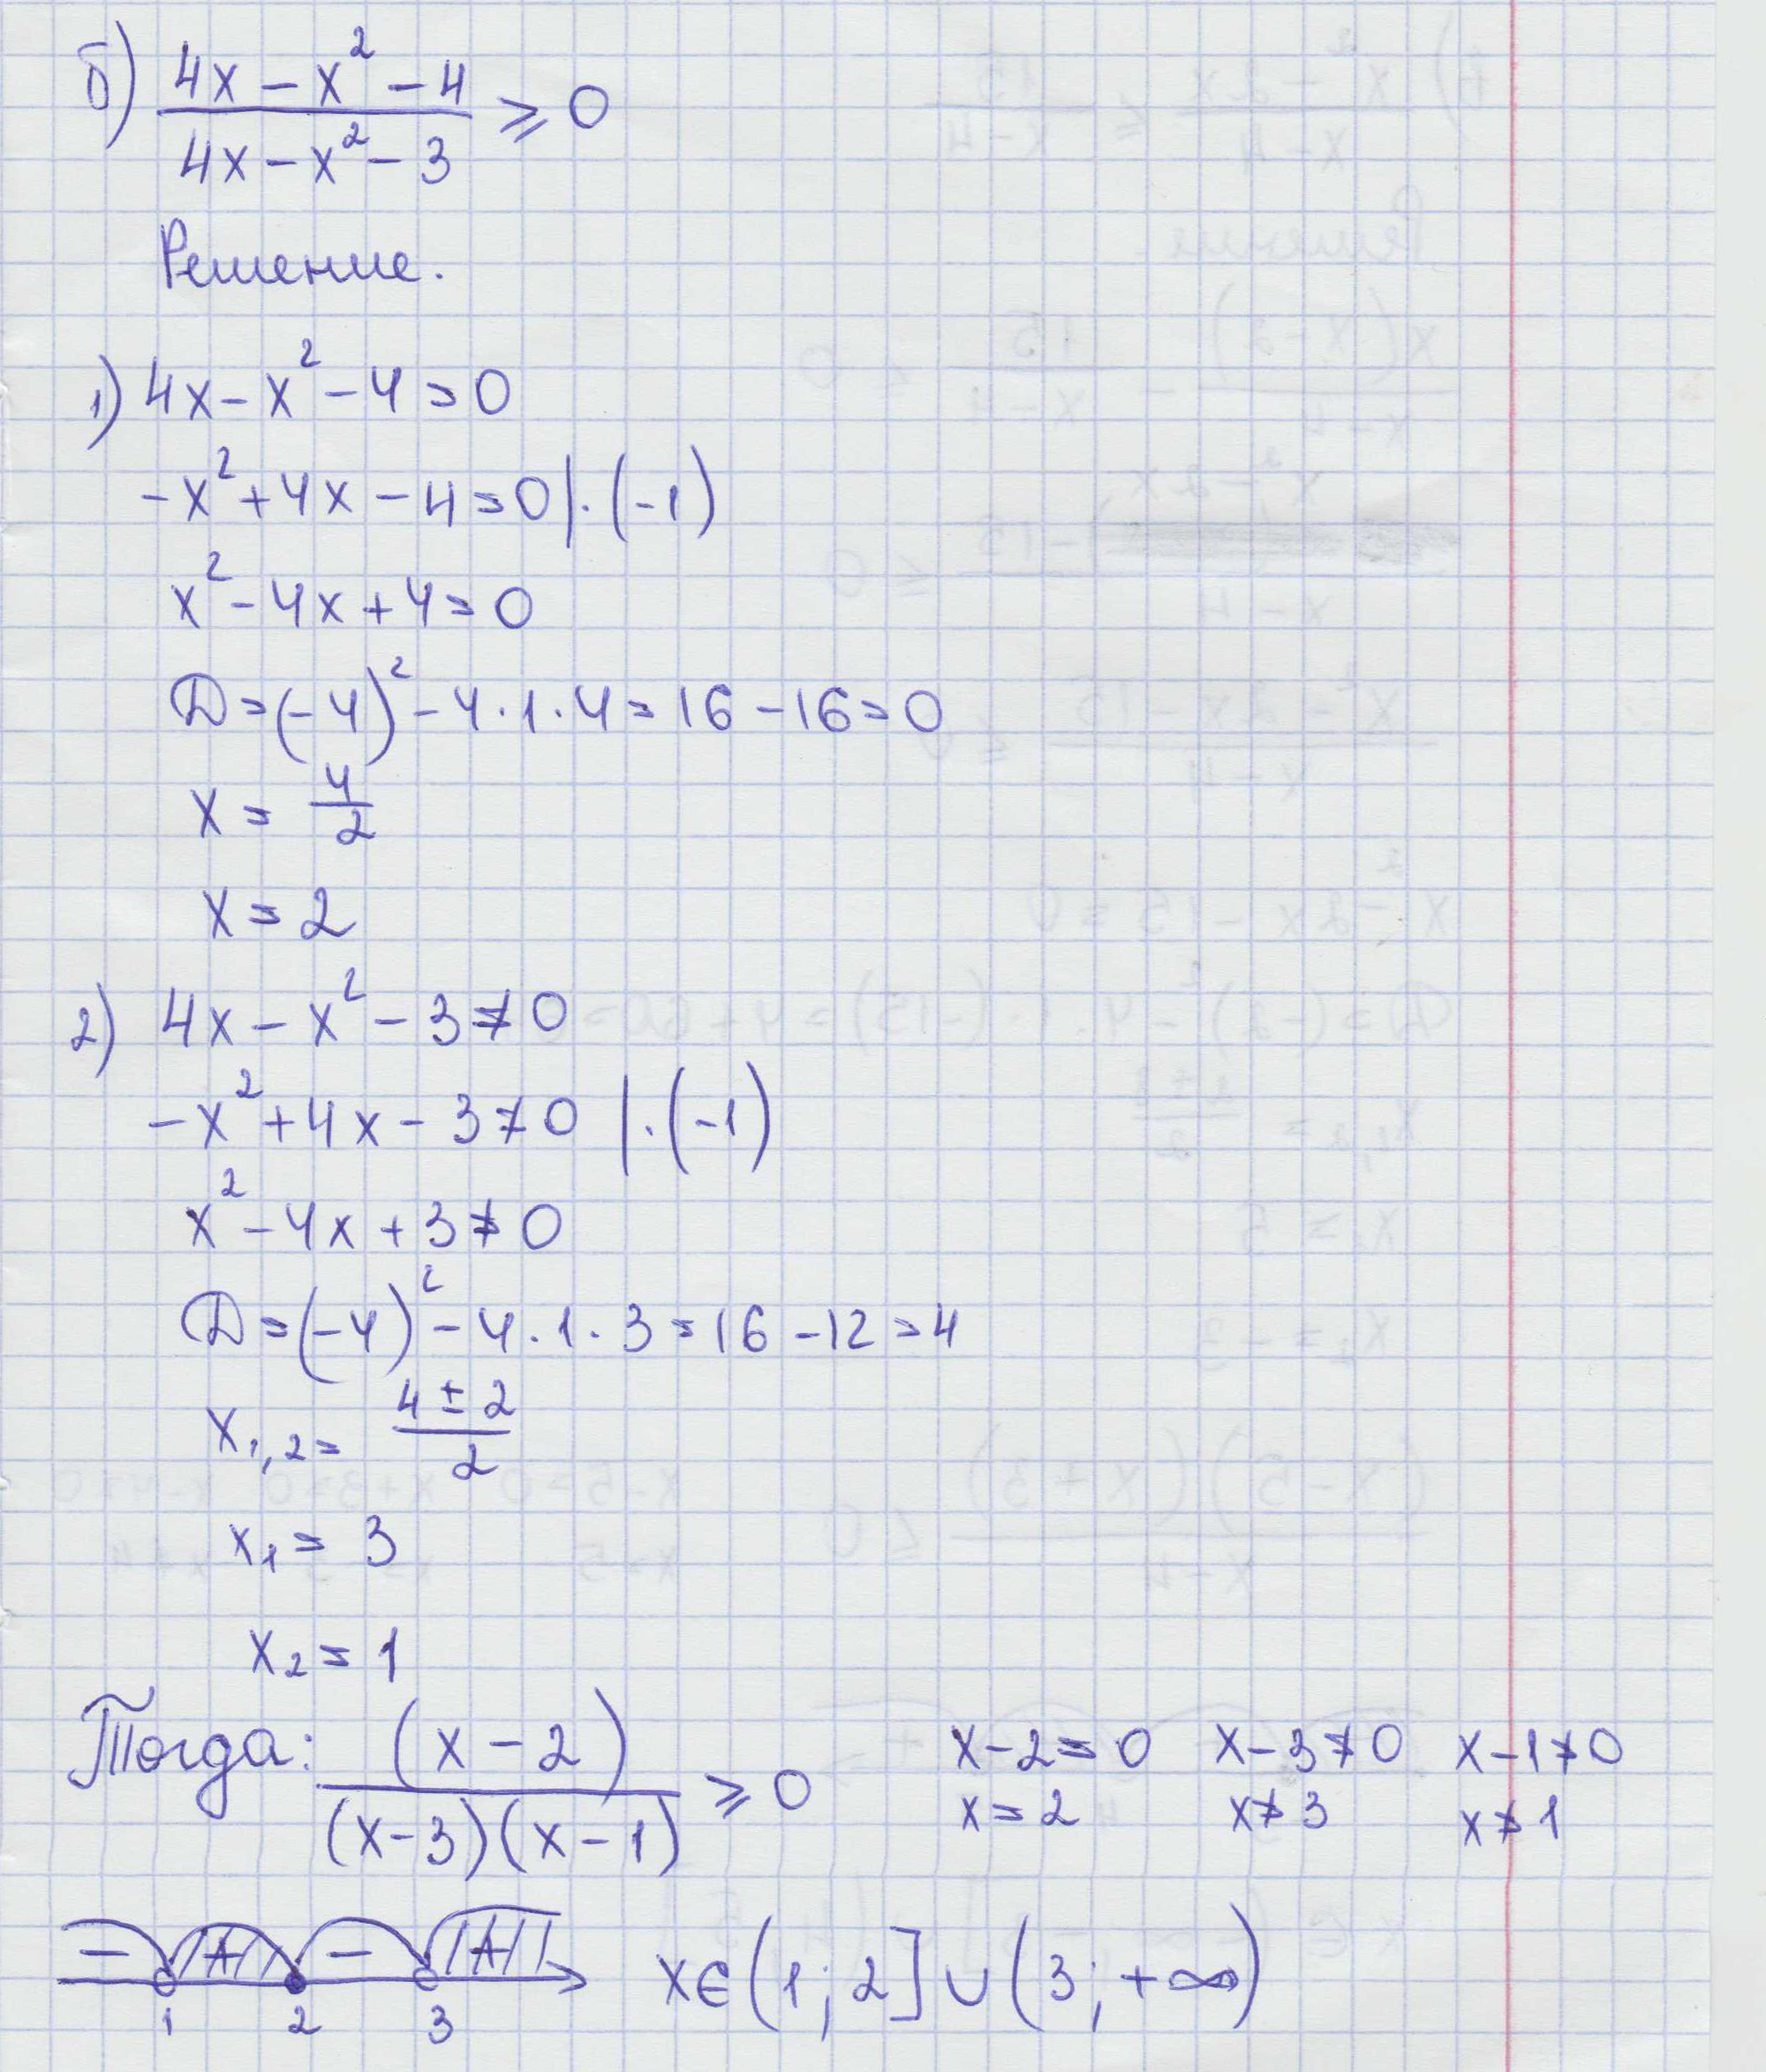 б) (4x − x² − 4)/(4x − x² − 3) ⩾ 0
Решение.
1) 4x − x² − 4 = 0
−x² + 4x − 4 = 0 | · (−1)
x² − 4x + 4 = 0
D = (−4)² − 4 · 1 · 4 = 16 − 16 = 0
x = 4/2
x = 2
2) 4x − x² − 3 ≠ 0
−x² + 4x − 3 ≠ 0 | · (−1)
x² − 4x + 3 ≠ 0
D = (−4)² − 4 · 1 · 3 = 16 − 12 = 4
x₁,₂ = (4 ± 2)/2
x₁ = 3
x₂ = 1
Тогда: (x − 2)/((x − 3)(x − 1)) ⩾ 0
x − 2 = 0 x − 3 ≠ 0 x − 1 ≠ 0
x = 2 x ≠ 3 x ≠ 1
− + − +
1 2 3
x ∈ (1; 2] ∪ (3; +∞)